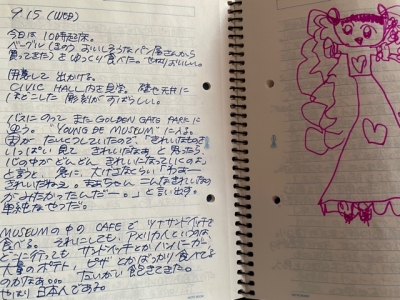 9/15 (WED)
今日は 10時起床。
ベーグル(きのう、おいしそうなパン屋さんから
買ってきた)を ゆっくり食べた。
出かける。
CIVIC HALL内を見学。 壁や天井に
ほどこした 彫刻が すばらしい。
バスにのって また GOLDEN GATE PARK に
"YOUNG DE MUSEUM" に入る。
たいくつしていたので、「きれいなものを
いっぱい 見て きれいだなぁ と 思ったら
心の中が どんどん きれいになっていくのよ」
と言うと、急に、大げさなくらい「わぁー
きれいだねぇ。 こんなきれいなの
がみたかったんだー。」と言い出す。
単純なやつだ。
MUSEUMの中の CAFE で ツナサンドイッチを
食べる。 それにしても、アメリカ人というのは
どこに行っても サンドイッチとか ハンバーガー、
大量のポテト、ピザ とかばっかり 食べてる
のかなぁ。。。 だいたい 飽きてきた。
やっぱり 日本人である。